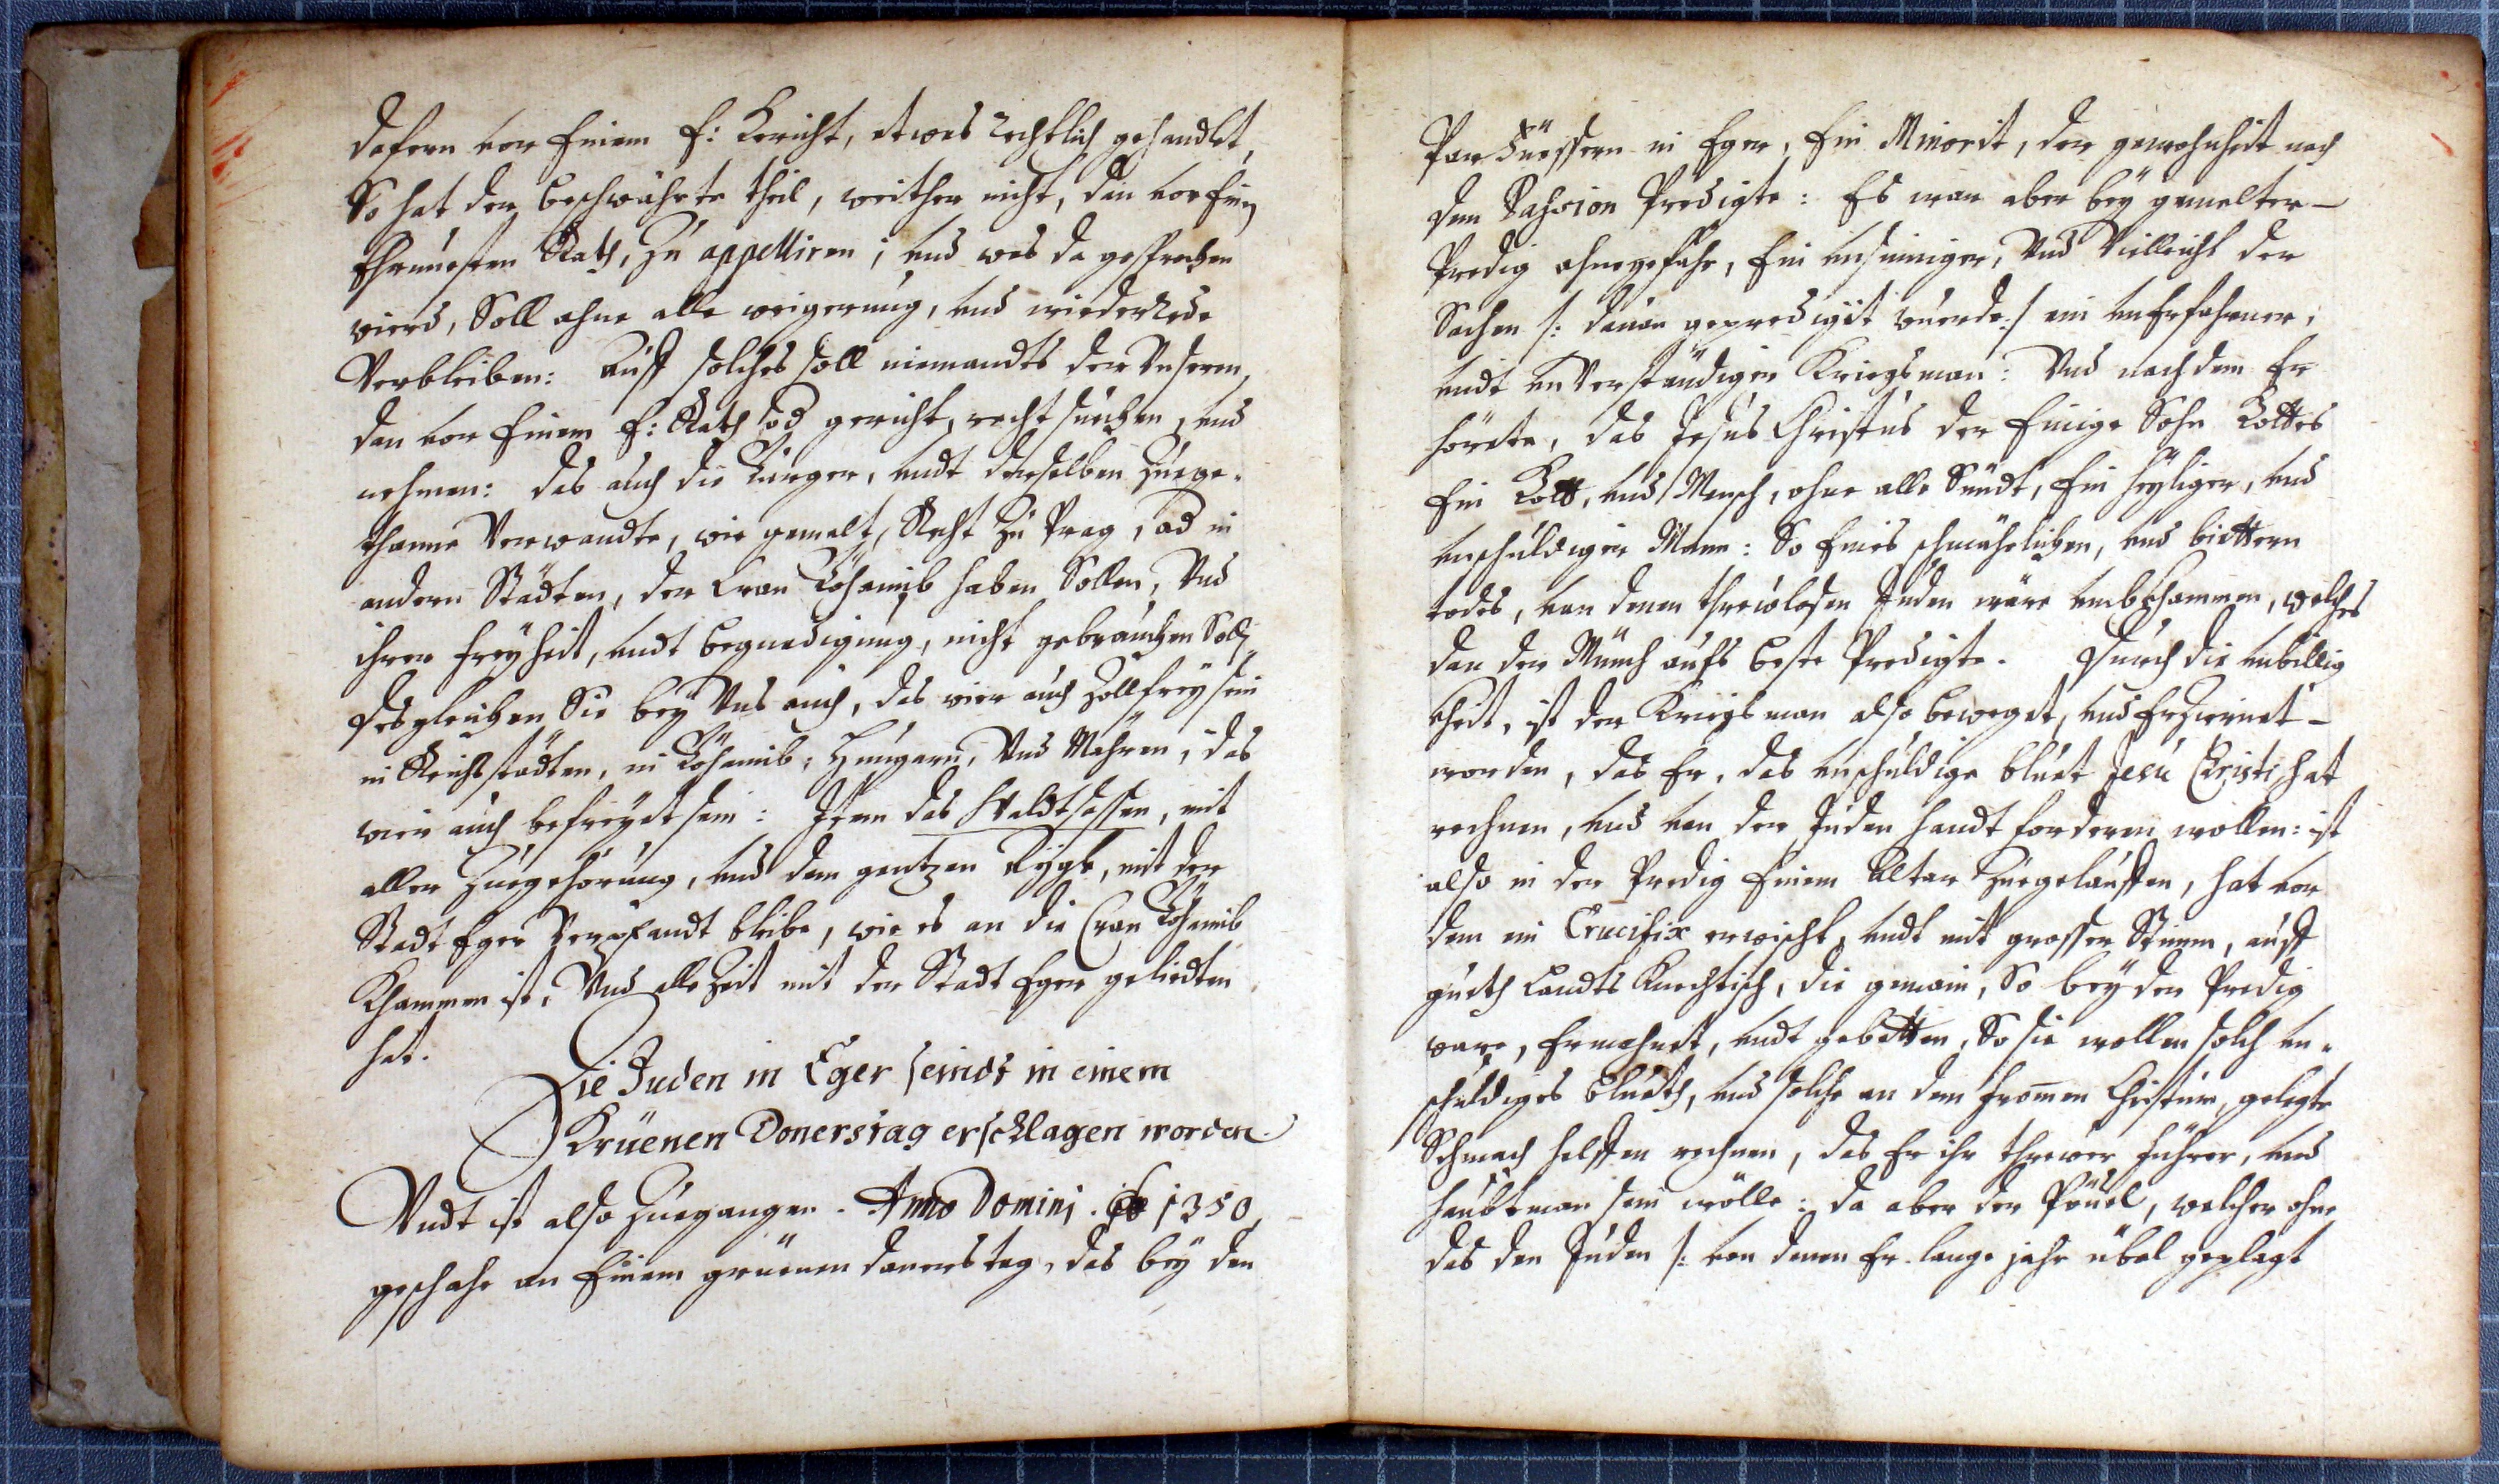 dafern vor Einem E: Gericht, etwas rechtlich gehandlet,
So hat der beschwährte theil, weither nicht, dan vor Einen
Ehrnuesten Rath, zu appelliren; und was da gesprochen
wierd, Soll ohne alle weigerung, und wiederrede
Verbleiben: Auff solches soll niemandts der Unseren,
dan vor Einem E: Rath od gericht, recht suechen, und
nehmen: das auch die Burger, undt derselben Zuege-
thanne Verwandte, wie gemelt, Recht zu Prag, od in
andern Städten, der Cron Böhaimb haben Sollen, Und
ihrer freyheit, undt begnadigung, nicht gebrauchen Soll,
desgleichen Sie bey Uns auch, das wier auch Zollfrey sein
in Reichsstädten, in Böhaimb, Hungarn, Und Mähren, das
wier auch befreyet sein: Item das Waldtsassen, mit
aller Zuegehörung, und dem gantzen, mit der
Stadt Eger Verpfandt bleibe, wie es an die Cron Böhaimb
Khommen ist, Und alle Zeit mit der Stadt Eger geliedten
hat.
Die Juden in Eger seindt in einem
Krüenen Donerstag erschlagen worden.
Undt ist also Zuegangen. Anno Domini. 1350,
geschahe an Einem grüenen donerstag, das bey den
Parfüessern in Eger, Ein Minorit, der gewohnheit nach
den Passion Predigte: Es war aber bey gemelter
Predig ohngefahr, Ein unsinniger, Und Villeicht der
Sachen /: dauon geprediget wuerde :/ ein unErfahrner,
undt unVerständiger Kriegsman: Und nach dem Er
hörete, das Jesus Christus der Einige Sohn Gottes
Ein Gott, und Mensch, ohne alle Sündt, Ein heyliger, und
unschuldiger Mann: So Eines schmählichen, und bittern
todes, von denen threwlosen Juden wäre umbkhommen, welches
dan der Münch aufs beste Predigte. Durch die unbillig
kheit, ist der Kriegsman also beweget, und Erziernet
worden, das Er, das unschuldige bluet Jesu Christi hat
rechnen, und von der Juden handt forderen wollen: ist
also in der Predig Einem Altar Zuegelauffen, hat von
dem ein Crucifix erwischt, undt mit grosser Stimm, auff
gueth Landts Knechtisch, die gemain, So bey der Predig
ware, Ermahnet, undt gebetten, So sie wollen solch un-
schuldiges bluedt, und solche an dem fromen Christum, gelegte
Schmach helffen rechnen, das Er ihr threwer führer, und
haubtman sein wölle: da aber der Pöuel, welcher ohne
das den Juden /: von denen Er lange jahr übel geplagt